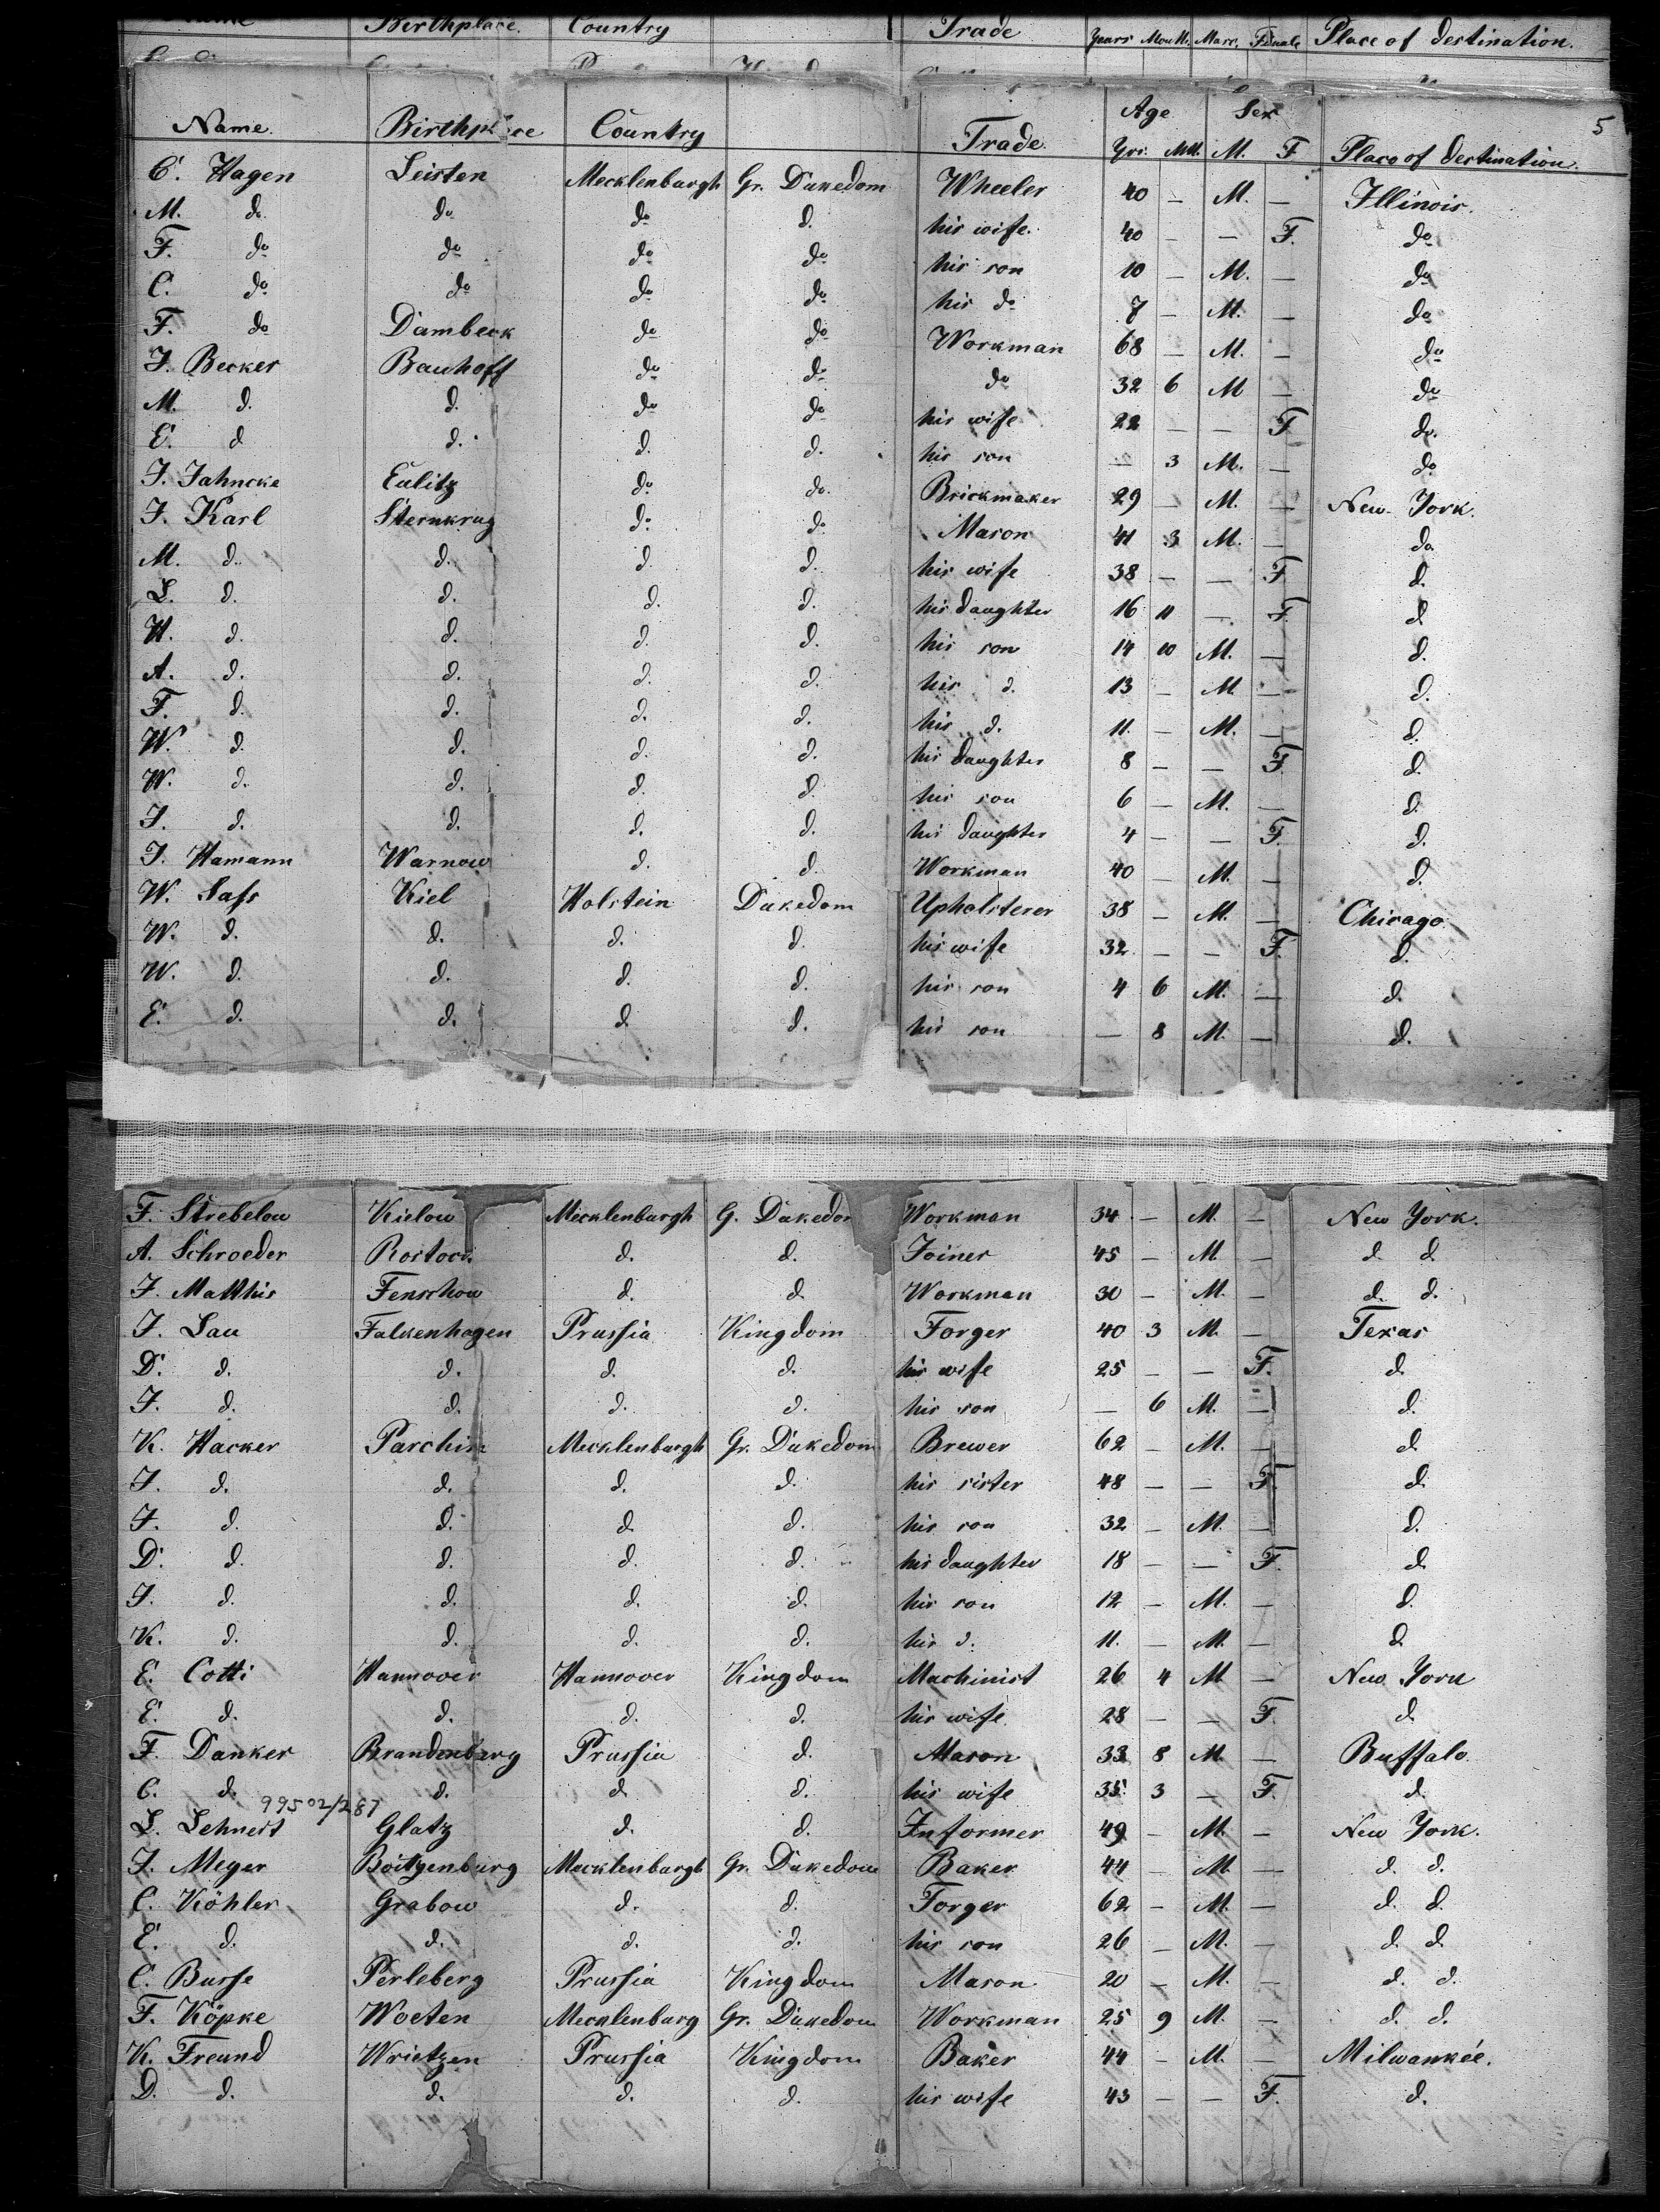 Name Birthplace. Country Trade Years Month. Masc. Female Place of destination.
5
Age Sex
Name. Birthplace Country Trade. Yrs. Mth. M. F. Place of destination.
C. Hagen Leisten Mecklenburgh Gr. Dukedom Wheeler 40 — M. — Illinois.
M. do do do d. his wife. 40 — — F. do
F. do do do do his son 10 — M. — do
C. do do do do his do 7 — M. — do
F. do Dambeck do do Workman 68 — M. — do
J. Becker Bauhoff do do do 32 6 M — do
M. d. d. do do his wife 22 — — F do.
E. d d. d. d. his son — 3 M. — do
J. Jahncke Eulitz do do. Brickmaker 29 — M. — New York.
J. Karl Sternkrug do do Mason 41 3 M. — do.
M. d. d. d. d. his wife 38 — — F d.
L. d. d. d. d. his daughter 16 11 — F. d
H. d. d. d. d. his son 14 10 M. — d.
A. d. d. d. d. his d. 13 — M. — d.
F. d. d. d. d. his d. 11. — M. — d.
W. d. d. d. d. his daughter 8 — — F. d.
W. d. d. d. d. his son 6 — M. — d.
J. d. d. d. d. his daughter 4 — — F. d.
J. Hamann Warnow d. d. Workman 40 — M. — d.
W. Sass Kiel Holstein Dukedom Upholsterer 38 — M. — Chicago.
W. d. d. d. d. his wife 32 — — F. d.
W. d. d. d. d. his son 4 6 M. — d.
E. d. d. d d. his son — 8 M. — d.
F. Strebelow Kielow Mecklenburgh G. Dukedom Workman 34 — M. — New York.
A. Schroeder Rostock d. d. Joiner 45 — M. — d d
J. Matthis Fenschow d. d Workman 30 — M. — d. d.
J. Lau Falkenhagen Prussia Kingdom Forger 40 3 M. — Texas
D. d. d. d. d. his wife 25 — — F. d.
J. d. d. d. d. his son — 6 M. — d.
K. Hacker Parchim Mecklenburgh Gr. Dukedom Brewer 62 — M. — d
J. d. d. d. d. his sister 48 — — F. d.
J. d. d. d d. his son 32 — M. — d.
D. d. d. d. d. his daughter 18 — — F. d.
J. d. d. d. d. his son 12 — M. — d.
K. d. d. d. d. his d. 11. — M. — d.
E. Cotti Hannover Hannover Kingdom Machinist 26 4 M — New York
E. d. d. d. d. his wife 28 — — F. d.
F. Danker Brandenburg Prussia d. Mason 33 8 M. — Buffalo.
C. d. d. d. d. his wife 35 3 — F. d.
99502/287
L. Lehnert Glatz d. d. Informer 49 — M. — New York.
J. Meyer Boitzenburg Mecklenburgh Gr. Dukedom Baker 44 — M. — d. d.
C. Köhler Grabow d. d. Forger 62 — M. — d. d.
E. d. d. d. d. his son 26 — M. — d. d.
C. Busse Perleberg Prussia Kingdom Mason 20 — M. — d. d.
F. Köpke Woeten Mecklenburg Gr. Dukedom Workman 25 9 M. — d. d.
K. Freund Wrietzen Prussia Kingdom Baker 44 — M. — Milwaukée.
D. d. d. d. d. his wife 43 — — F. d.